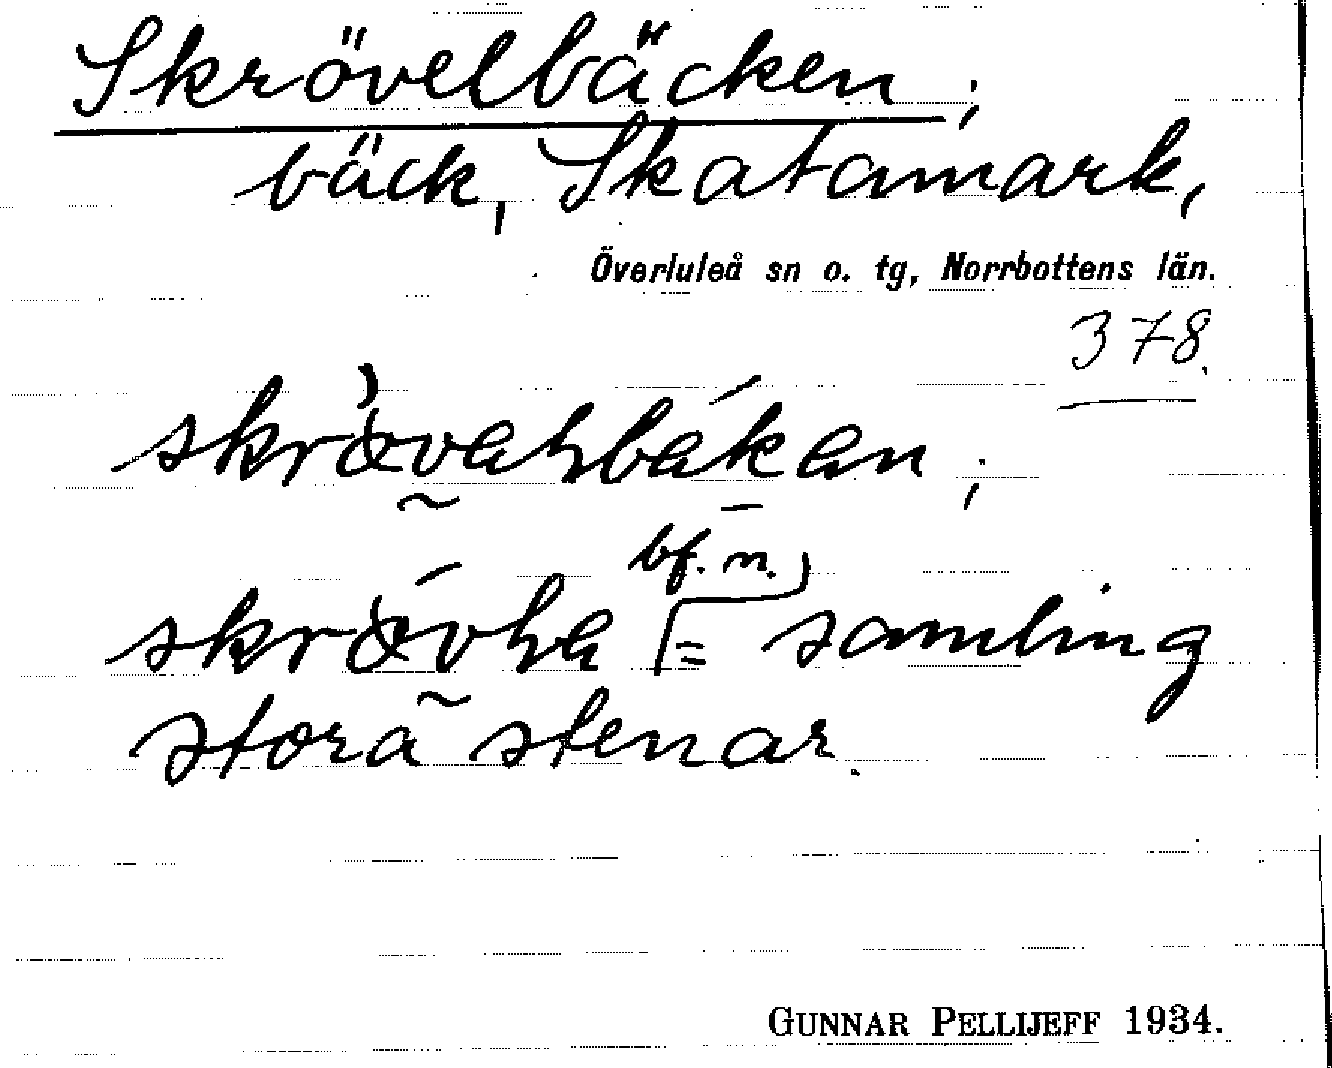 Skrövelbäcken;
bäck, Skatamark,
Överluleå sn o. tg, Norrbottens län.
378.
bf. n.
= samling
stora stenar.
GUNNAR PELLIJEFF 1934.